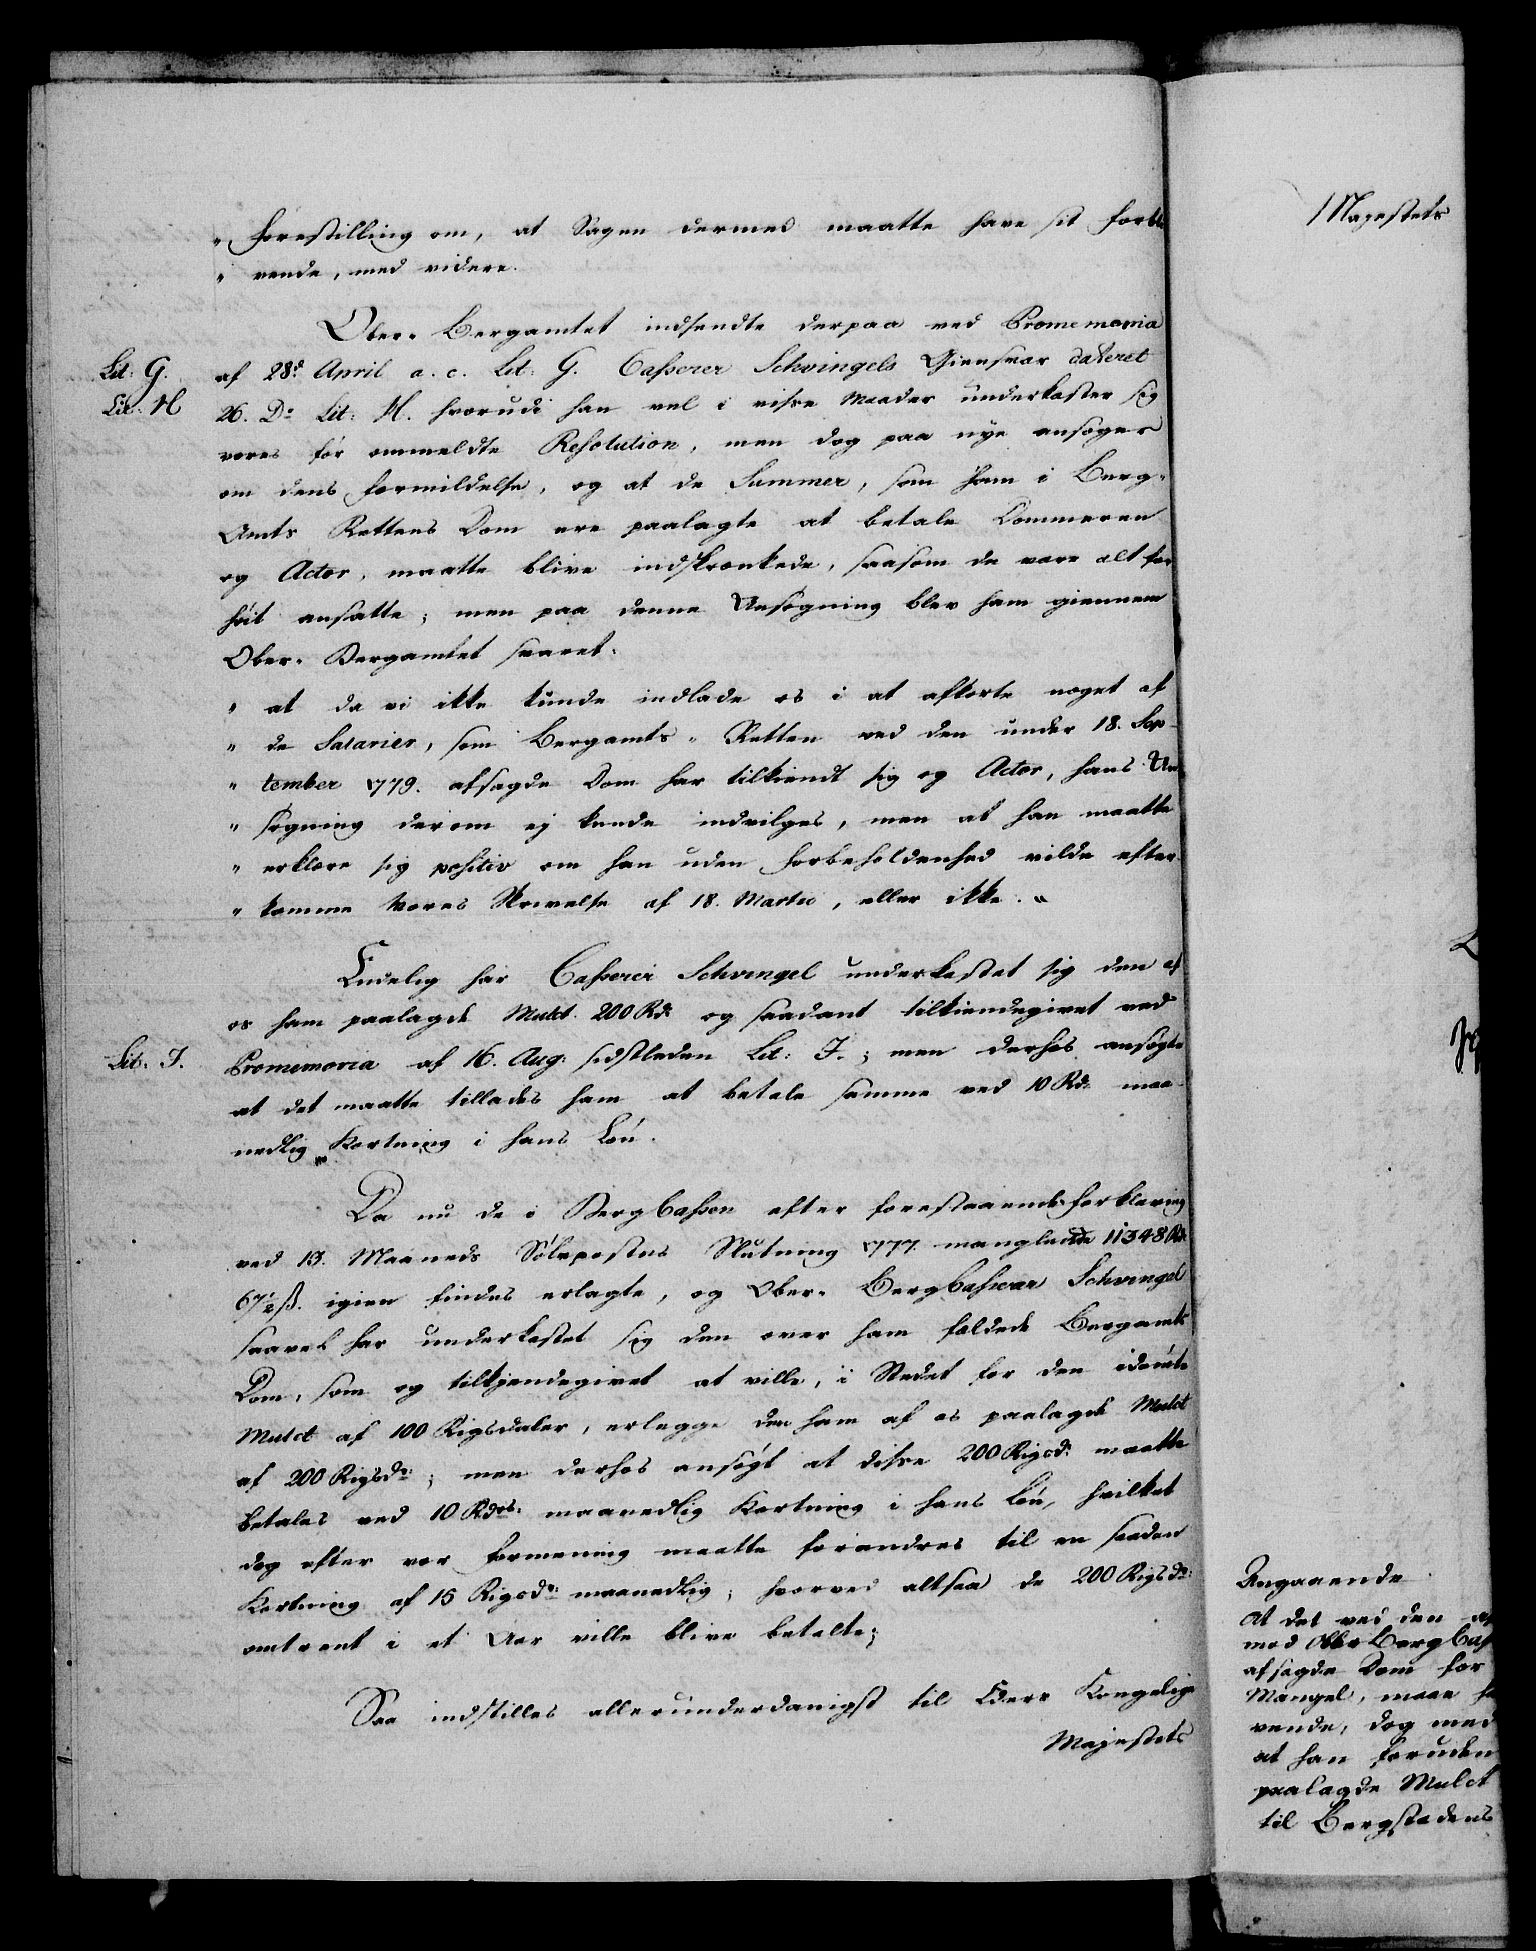 " Forestilling om, at Sagen dermed maatte have sit forbli-
" vende, med videre.
Ober-Bergamtet indsendte derpaa ved Promemoria
Lit: G.
af 28d April a. c. Lit: G. Casserer Schvingels Giensvar dateret
Lit: H
26. Do Lit: H. hvorudi han vel i visse Maader underkaster sig
vores før ommeldte Resolution, men dog paa nye ansøger
om dens formildelse, og at de Summer, som ham i Berg-
Amts Rettens Dom ere paalagte at betale Dommeren
og Actor, maatte blive indskrænkede, saasom de vare alt for
høit ansatte; men paa denne Ansøgning blev ham giennem
Ober-Bergamtet svaret:
" at da vi ikke kunde indlade os i at afkorte noget af
" de Salarier, som Bergamts-Retten ved den under 18. Sep-
" tember 1779. afsagde Dom har tilkiendt sig og Actor, hans An-
" søgning derom ej kunde indvilges, men at han maatte
" erklære sig positiv om han uden forbeholdenhed vilde efter-
" komme Vores Skrivelse af 18. Martii, eller ikke. "
Endelig har Casserer Schvingel underkastet sig den af
os ham paalagde Mulct 200 Rd. og saadant tilkiendegivet ved
Lit: I.
Promemoria af 16. Aug: sidstleden Lit: I.; men derhos ansøgte
at det maatte tillades ham at betale samme ved 10 Rd. maa-
nedlig Kortning i hans Løn.
Da nu de i BergCassen efter forestaaende forklaring
ved 13. Maaneds Sølvpostes Slutning 1777. manglende 11348 Rd.
67½ ß. igien findes erlagte, og Ober-BergCasserer Schvingel
saavel har underkastet sig den over ham fældede Bergamts
Dom, som og tilkjendegivet at ville, i Stedet for den idømte
Mulct af 100 Rigsdaler, erlegge den ham af os paalagde Mulct
af 200 Rigsdr: ; men derhos ansøgt at disse 200 Rigsd: maatte
betales ved 10 Rdrs: maanedlig Kortning i hans Løn, hvilket
dog efter vor formening maatte forandres til en saadan
Kortning af 15 Rigsdr: maanedlig; hvorved altsaa de 200 Rigsdr:
omtrent i et Aar ville blive betalte;
Saa indstilles allerunderdanigst til Eders Kongelige
Majestets
/Majestets
Angaaende
At det ved den af
mod Ober BergCas
afsagde Dom for
Mangel, maae ha
vende, dog med
at han foruden
paalagde Mulct
til Bergstadens